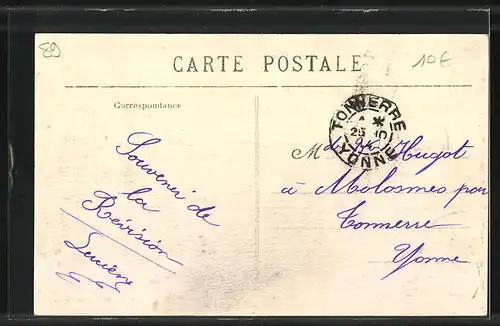 89
10€
CARTE POSTALE
Correspondance
TONNERRE
YONNE
25
Souvenir de
la
Révision
Lucien
M Hugot
à Molosmes par
Tonnerre
Yonne